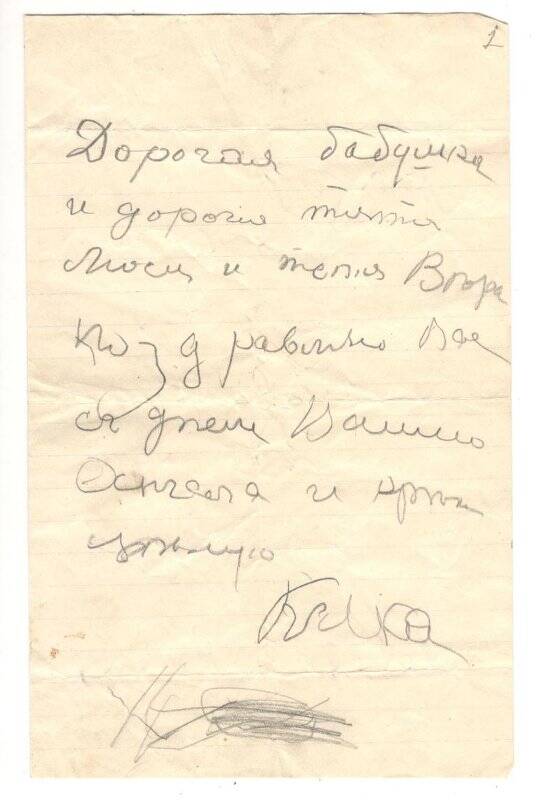 1
Дорогая бабушка
и дорогия тятя
Люся и тетя Вера
Поздравляю Вас
съ днем Вашего
Ангела и
целую